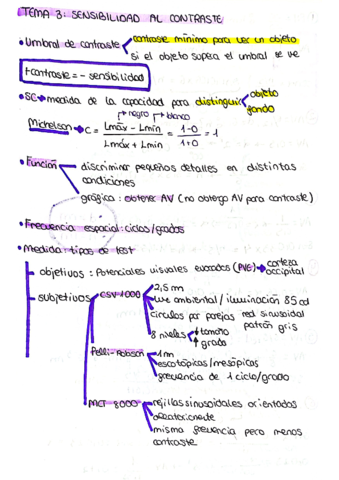 TEMA 3: SENSIBILIDAD AL CONTRASTE
• Umbral de contraste contraste mínimo para ver un objeto
si el objeto supera el umbral se ve
+contraste = - sensibilidad
• SC → medida de la capacidad para distinguir objeto
fondo
negro blanco
Michelson → C = Lmáx - Lmín = 1-0 = 1
Lmáx + Lmín 1+0
• Función discriminar pequeños detalles en distintas
condiciones
gráfica: obtener AV (no obtengo AV para contraste)
• Frecuencia espacial: ciclos/grados
• Medida: tipos de test
objetivos: Potenciales visuales evocados (PVE) → corteza
occipital
subjetivos CSV 1000 2,5 m
luz ambiental / iluminación 85 cd
círculos por parejas red sinusoidal
patrón gris
8 niveles ↑ tamaño
↑ grado
Pelli-Robson 1m
escotópicas/mesópicas
frecuencia de 1 ciclo/grado
MCT 8000 rejillas sinusoidales orientadas
aleatoriamente
misma frecuencia pero menos
contraste